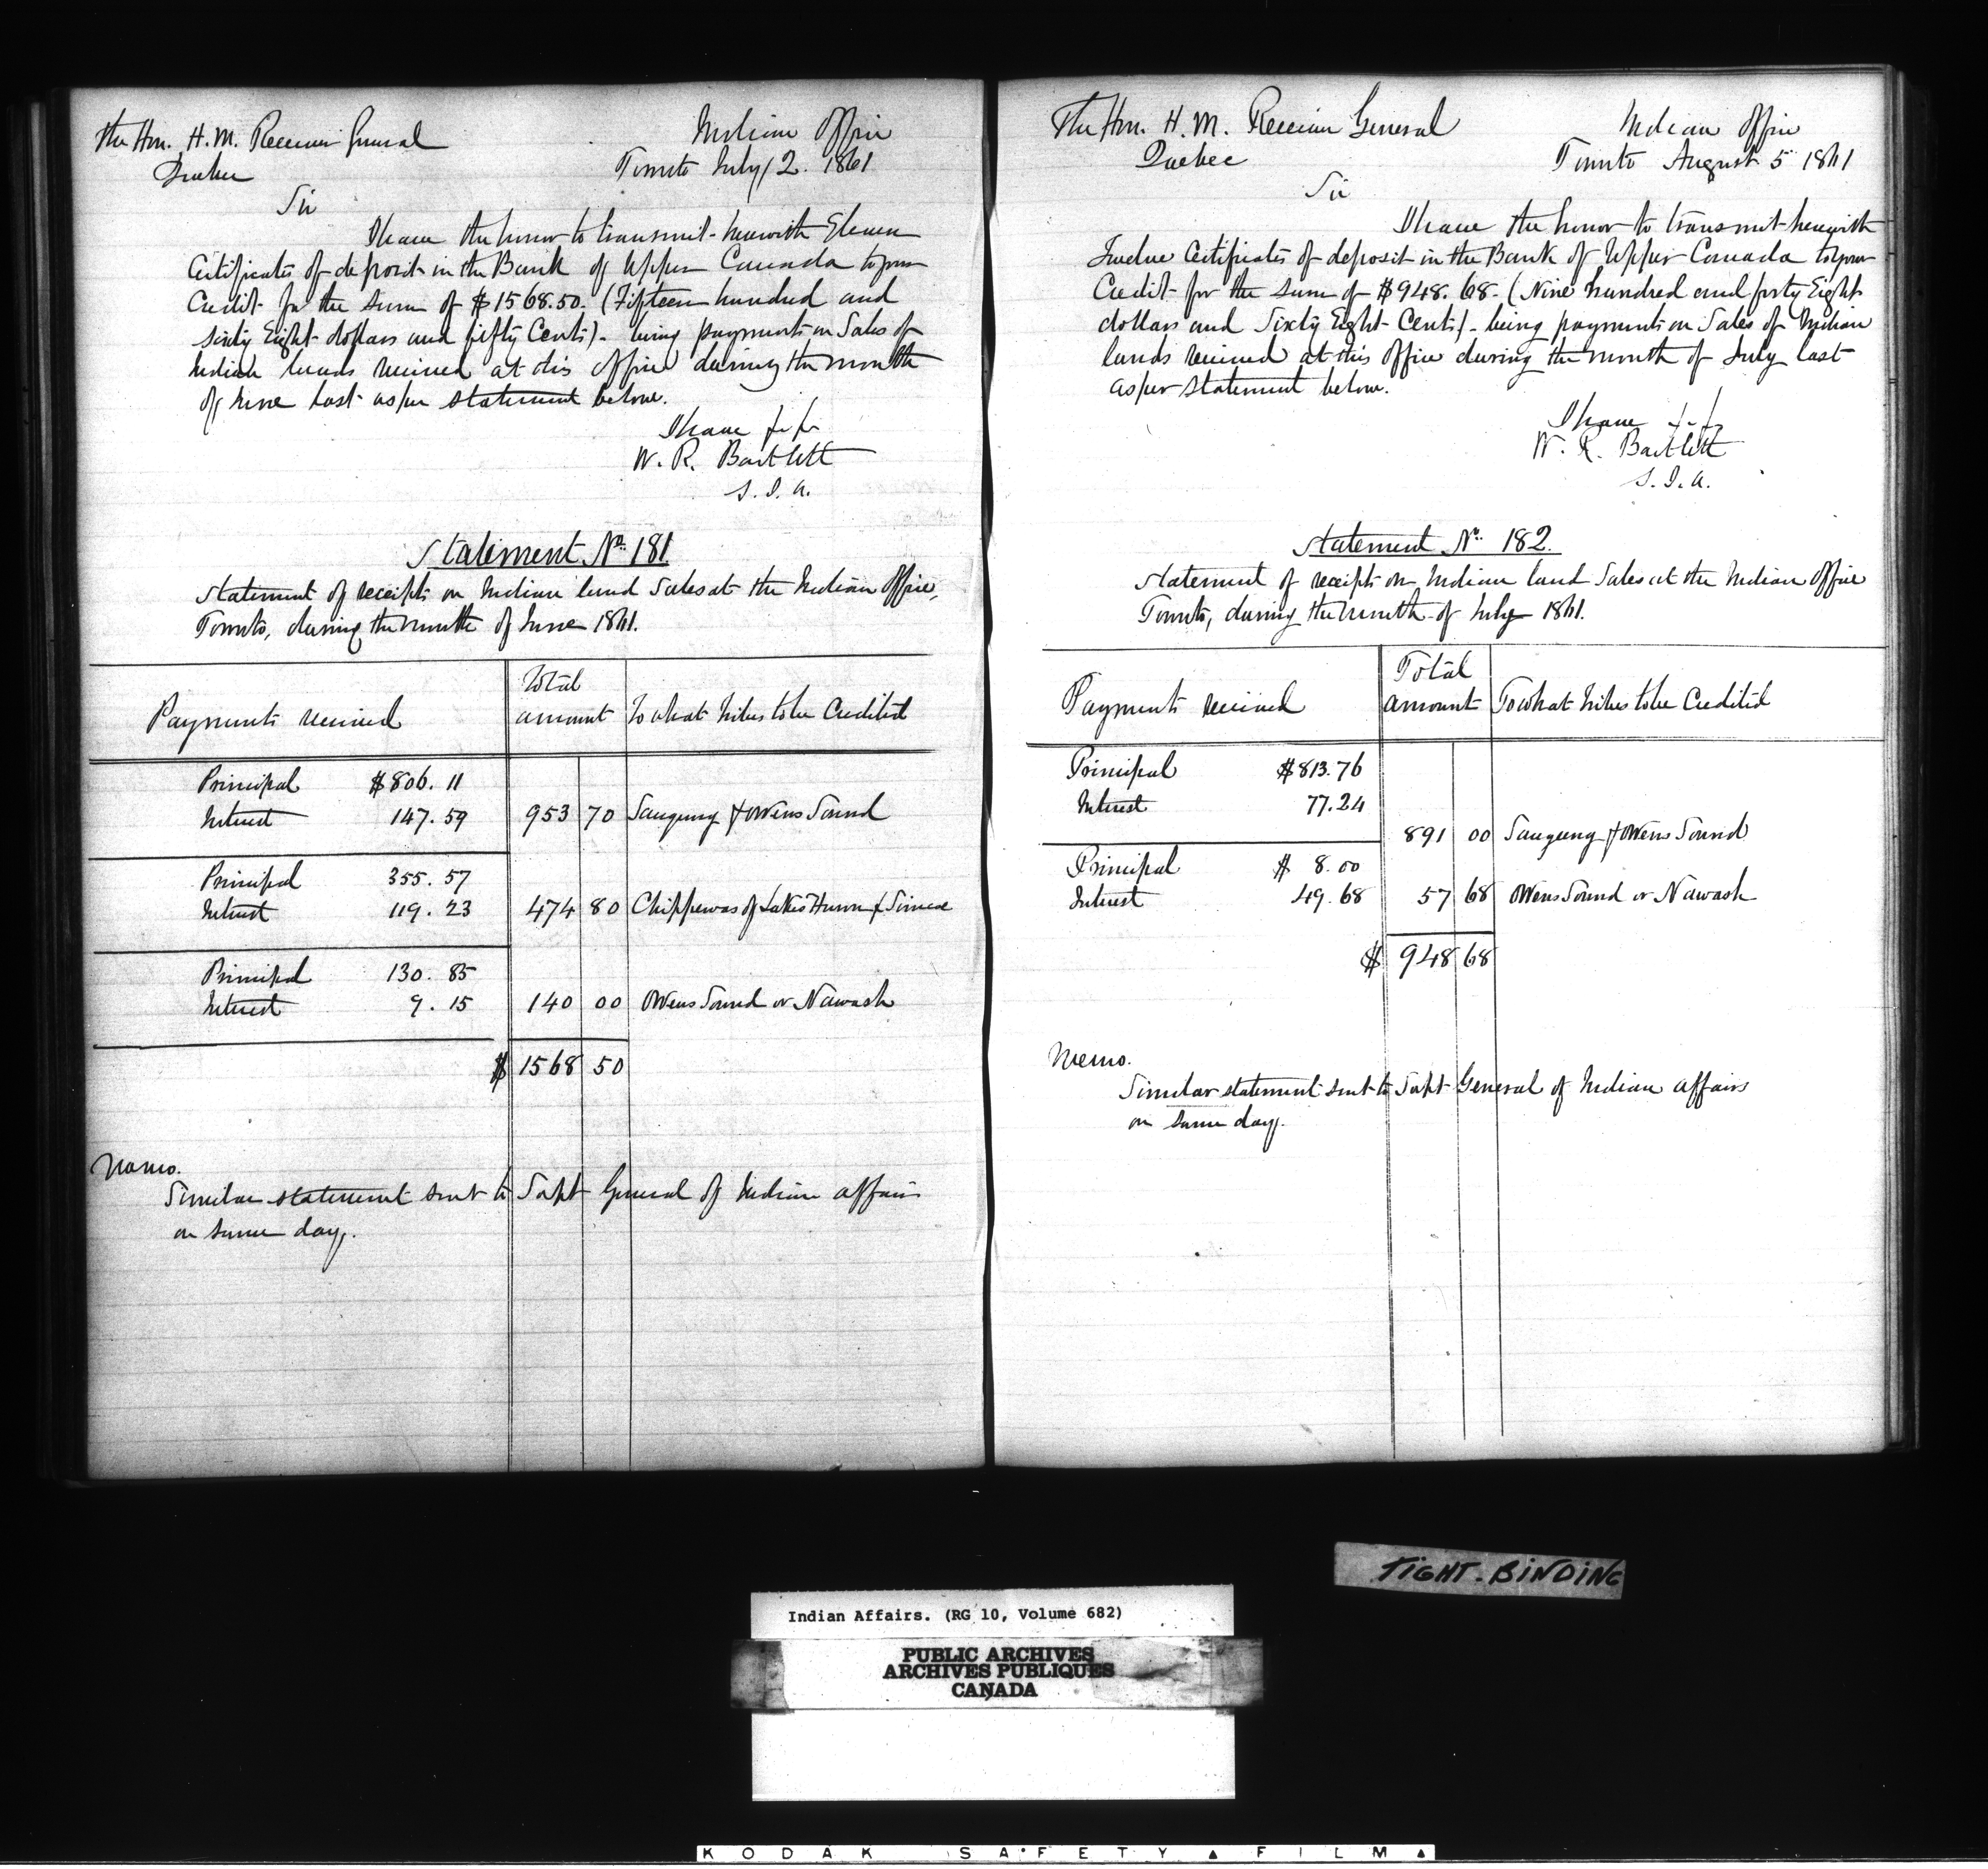 The Hon. H. M. Receiver General
Quebec
Indian Office
Toronto July 2. 1861
Sir
I have the honor to transmit herewith Eleven
Certificates of deposit in the Bank of Upper Canada to your
Credit for the sum of $1568.50. (Fifteen hundred and
sixty Eight dollars and fifty Cents) - being payments on Sales of
Indian lands received at this office during the month
of June last as per statement below.
I have
W. R. Bartlett
S. I. A.
Statement No. 181
Statement of receipts on Indian land Sales at the Indian Office,
Toronto, during the month of June 1861.
Payments received
Total amount
To what tribes to be Credited
Principal $806.11
Interest 147.59 953 70 Saugeeng & Owens Sound
Principal 355.57
Interest 119.23 474 80 Chippewas of Lakes Huron & Simcoe
Principal 130.85
Interest 9.15 140 00 Owens Sound or Nawash
$ 1568 50
Memo.
Similar statement sent to Supt General of Indian affairs
on same day.
The Hon. H. M. Receiver General
Quebec
Indian Office
Toronto August 5 1861
Sir
I have the honor to transmit herewith
Twelve Certificates of deposit in the Bank of Upper Canada to your
Credit for the sum of $948.68 - (Nine hundred and forty Eight
dollars and Sixty Eight Cents) - being payments on Sales of Indian
lands received at this Office during the month of July last
as per statement below.
I have
W. R. Bartlett
S. I. A.
Statement No. 182.
Statement of receipts on Indian land Sales at the Indian Office
Toronto, during the month of July 1861.
Payments received
Total amount
To what tribes to be Credited
Principal $813.76
Interest 77.24
891 00 Saugeeng & Owens Sound
Principal $ 8.00
Interest 49.68 57 68 Owens Sound or Nawash
$ 948 68
Memo.
Similar statement sent to Supt General of Indian affairs
on same day.
TIGHT-BINDING
Indian Affairs. (RG 10, Volume 682)
PUBLIC ARCHIVES
ARCHIVES PUBLIQUES
CANADA
KODAK SAFETY FILM